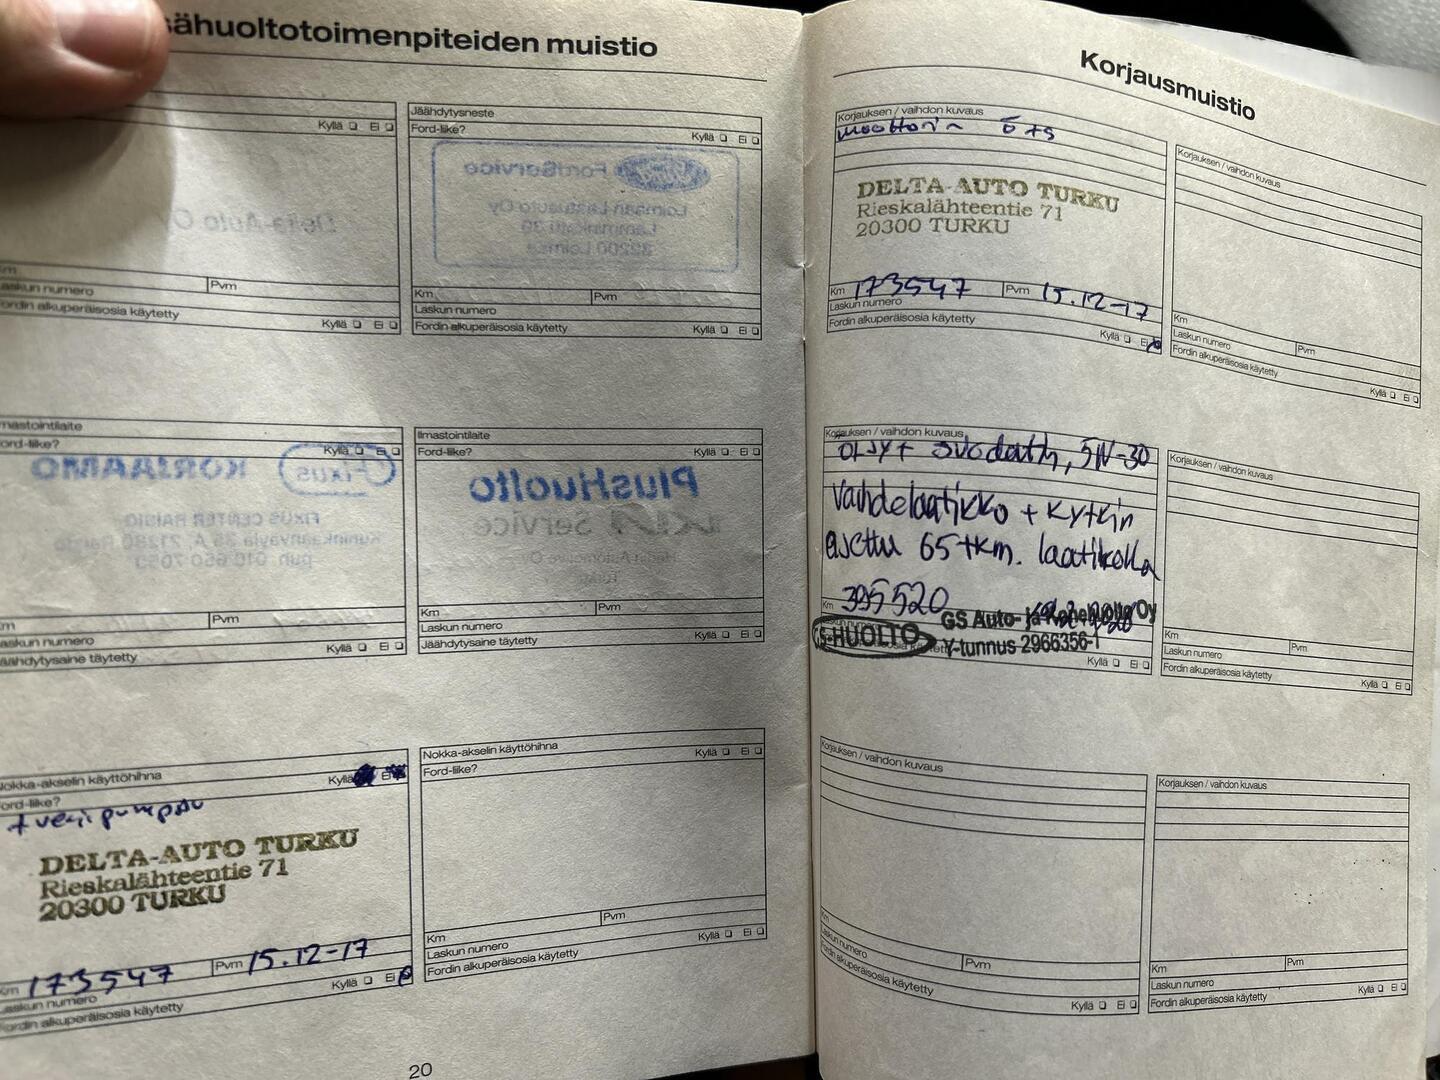 sähuoltotoimenpiteiden muistio
Kyllä ❏ Ei ❏
Km
Pvm
Laskun numero
Fordin alkuperäisosia käytetty
Kyllä ❏ Ei ❏
Jäähdytysneste
Ford-like?
Kyllä ❏ Ei ❏
FordService
Loimaan Laatuauto Oy
Lamminkatu 30
32200 Loimaa
Km
Pvm
Laskun numero
Fordin alkuperäisosia käytetty
Kyllä ❏ Ei ❏
Delta-Auto Oy
mastointilaite
ord-like?
Kyllä ❏ Ei ❏
Fixus KORJAAMO
FIXUS CENTER RAISIO
Kuninkaanväylä 35 A, 21280 Raisio
puh 010 650 7050
Km
Pvm
Laskun numero
äähdytysaine täytetty
Kyllä ❏ Ei ❏
Ilmastointilaite
Ford-like?
Kyllä ❏ Ei ❏
PlusHuolto
KIA Service
Km
Pvm
Laskun numero
Jäähdytysaine täytetty
Kyllä ❏ Ei ❏
Nokka-akselin käyttöhihna
ord-like?
Kyllä Ei
+ vesipumppu
DELTA-AUTO TURKU
Rieskalähteentie 71
20300 TURKU
Km 173547
Pvm 15.12-17
Laskun numero
Fordin alkuperäisosia käytetty
Kyllä ❏ Ei
Nokka-akselin käyttöhihna
Ford-like?
Kyllä ❏ Ei ❏
Km
Pvm
Laskun numero
Fordin alkuperäisosia käytetty
Kyllä ❏ Ei ❏
20
Korjausmuistio
Korjauksen / vaihdon kuvaus
moottorin
DELTA-AUTO TURKU
Rieskalähteentie 71
20300 TURKU
Km 173547
Pvm 15.12-17
Laskun numero
Fordin alkuperäisosia käytetty
Kyllä ❏ Ei
Korjauksen / vaihdon kuvaus
Km
Pvm
Laskun numero
Fordin alkuperäisosia käytetty
Kyllä ❏ Ei ❏
Korjauksen / vaihdon kuvaus
öljyt suodatin, 5W-30
Vaihdelaatikko + kytkin
65tkm. laatikolla
Km 395520
GS-HUOLTO
GS Auto- ja Oy
Y-tunnus 2966356-1
Kyllä ❏ Ei ❏
Korjauksen / vaihdon kuvaus
Km
Pvm
Laskun numero
Fordin alkuperäisosia käytetty
Kyllä ❏ Ei ❏
Korjauksen / vaihdon kuvaus
Km
Pvm
Laskun numero
Fordin alkuperäisosia käytetty
Kyllä ❏ Ei ❏
Korjauksen / vaihdon kuvaus
Km
Pvm
Laskun numero
Fordin alkuperäisosia käytetty
Kyllä ❏ Ei ❏